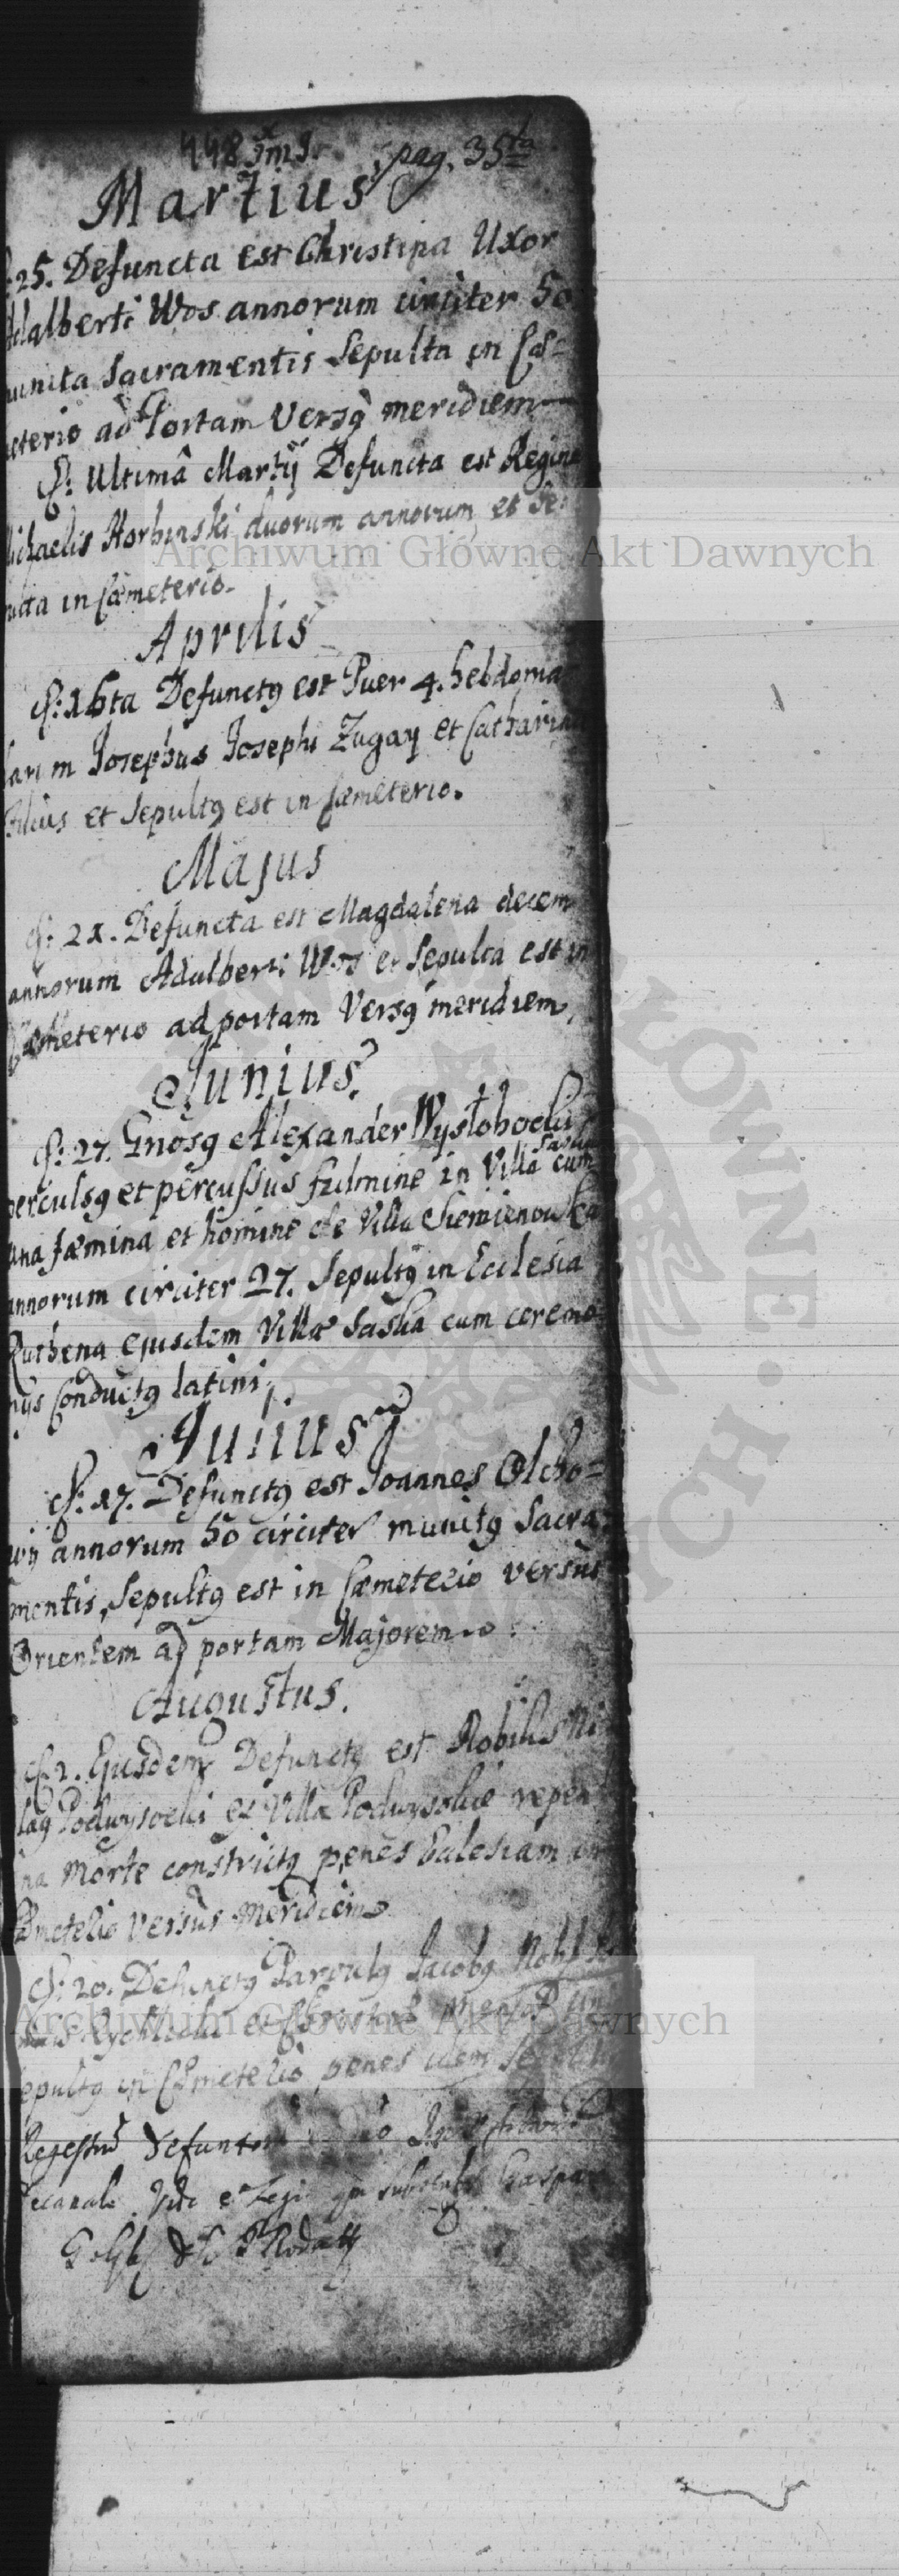 448 pag. 35ta
Martius
25. Defuncta est Christina Uxor
Adalberti Wos annorum circiter 50
munita Sacramentis Sepulta in Cæ-
meterio ad Portam Versq meridiem
d: Ultimâ Martij Defuncta est Regina
Michaelis Horbinski duorum annorum et Se:
pulta in Cæmeterio.
Aprilis
d: 16ta Defunctq est Puer 4. hebdoma
darum Josephus Josephi Zugay et Catharinæ
Filius et Sepultq est in Cæmeterio.
Majus
d: 21. Defuncta est Magdalena decem
annorum Adalberti Wos et Sepulta est in
Cæmeterio ad portam Versq meridiem,
Junius.
d: 27. Gnosq Alexander Wysłobocki
perculsq et percussus fulmine in Villa Saska cum
una fæmina et homine de Villa Siemienowka
annorum circiter 27. Sepultq in Ecclesia
Ruthena ejusdem Villæ Saska cum ceremo=
nijs Conductq latini.
Julius
d: 17. Defunctq est Joannes Olcho=
wy annorum 50 circiter munitq Sacra=
mentis, Sepultq est in Cæmeterio versus
Orientem ad portam Majorem.
Augustus.
d 2. Ejusdem Defunctq est Nobilis Ni
laq Podwysocki ex Villa Podwysokie repen
na Morte constrictq penes Ecclesiam in
Cæmeterio Versus Meridiem
d: 20. Defunctq Parvulq Jacobq
et
Sepultq in Cæmeterio penes
Defunctor
Vidi et Legi Gaspar
Archiwum Główne Akt Dawnych
Archiwum Główne Akt Dawnych